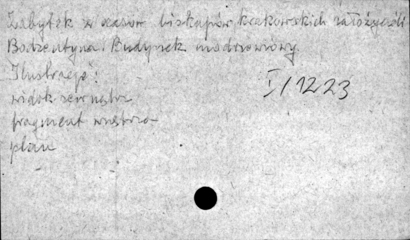 Zabytek z czasów biskupów krakowskich założycieli
Bodzentyna. Budynek modrzewiowy.
Ilustracje:
widok zewnątrz
fragment wnętrza
plan
I/1223